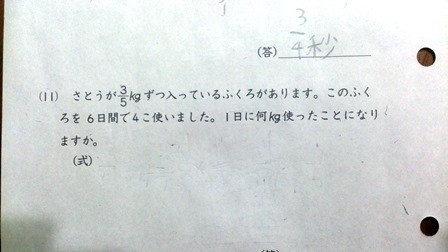 (答) 3/4秒
(11) さとうが3/5kgずつ入っているふくろがあります。このふく
ろを6日間で4こ使いました。1日に何kg使ったことになり
ますか。
(式)